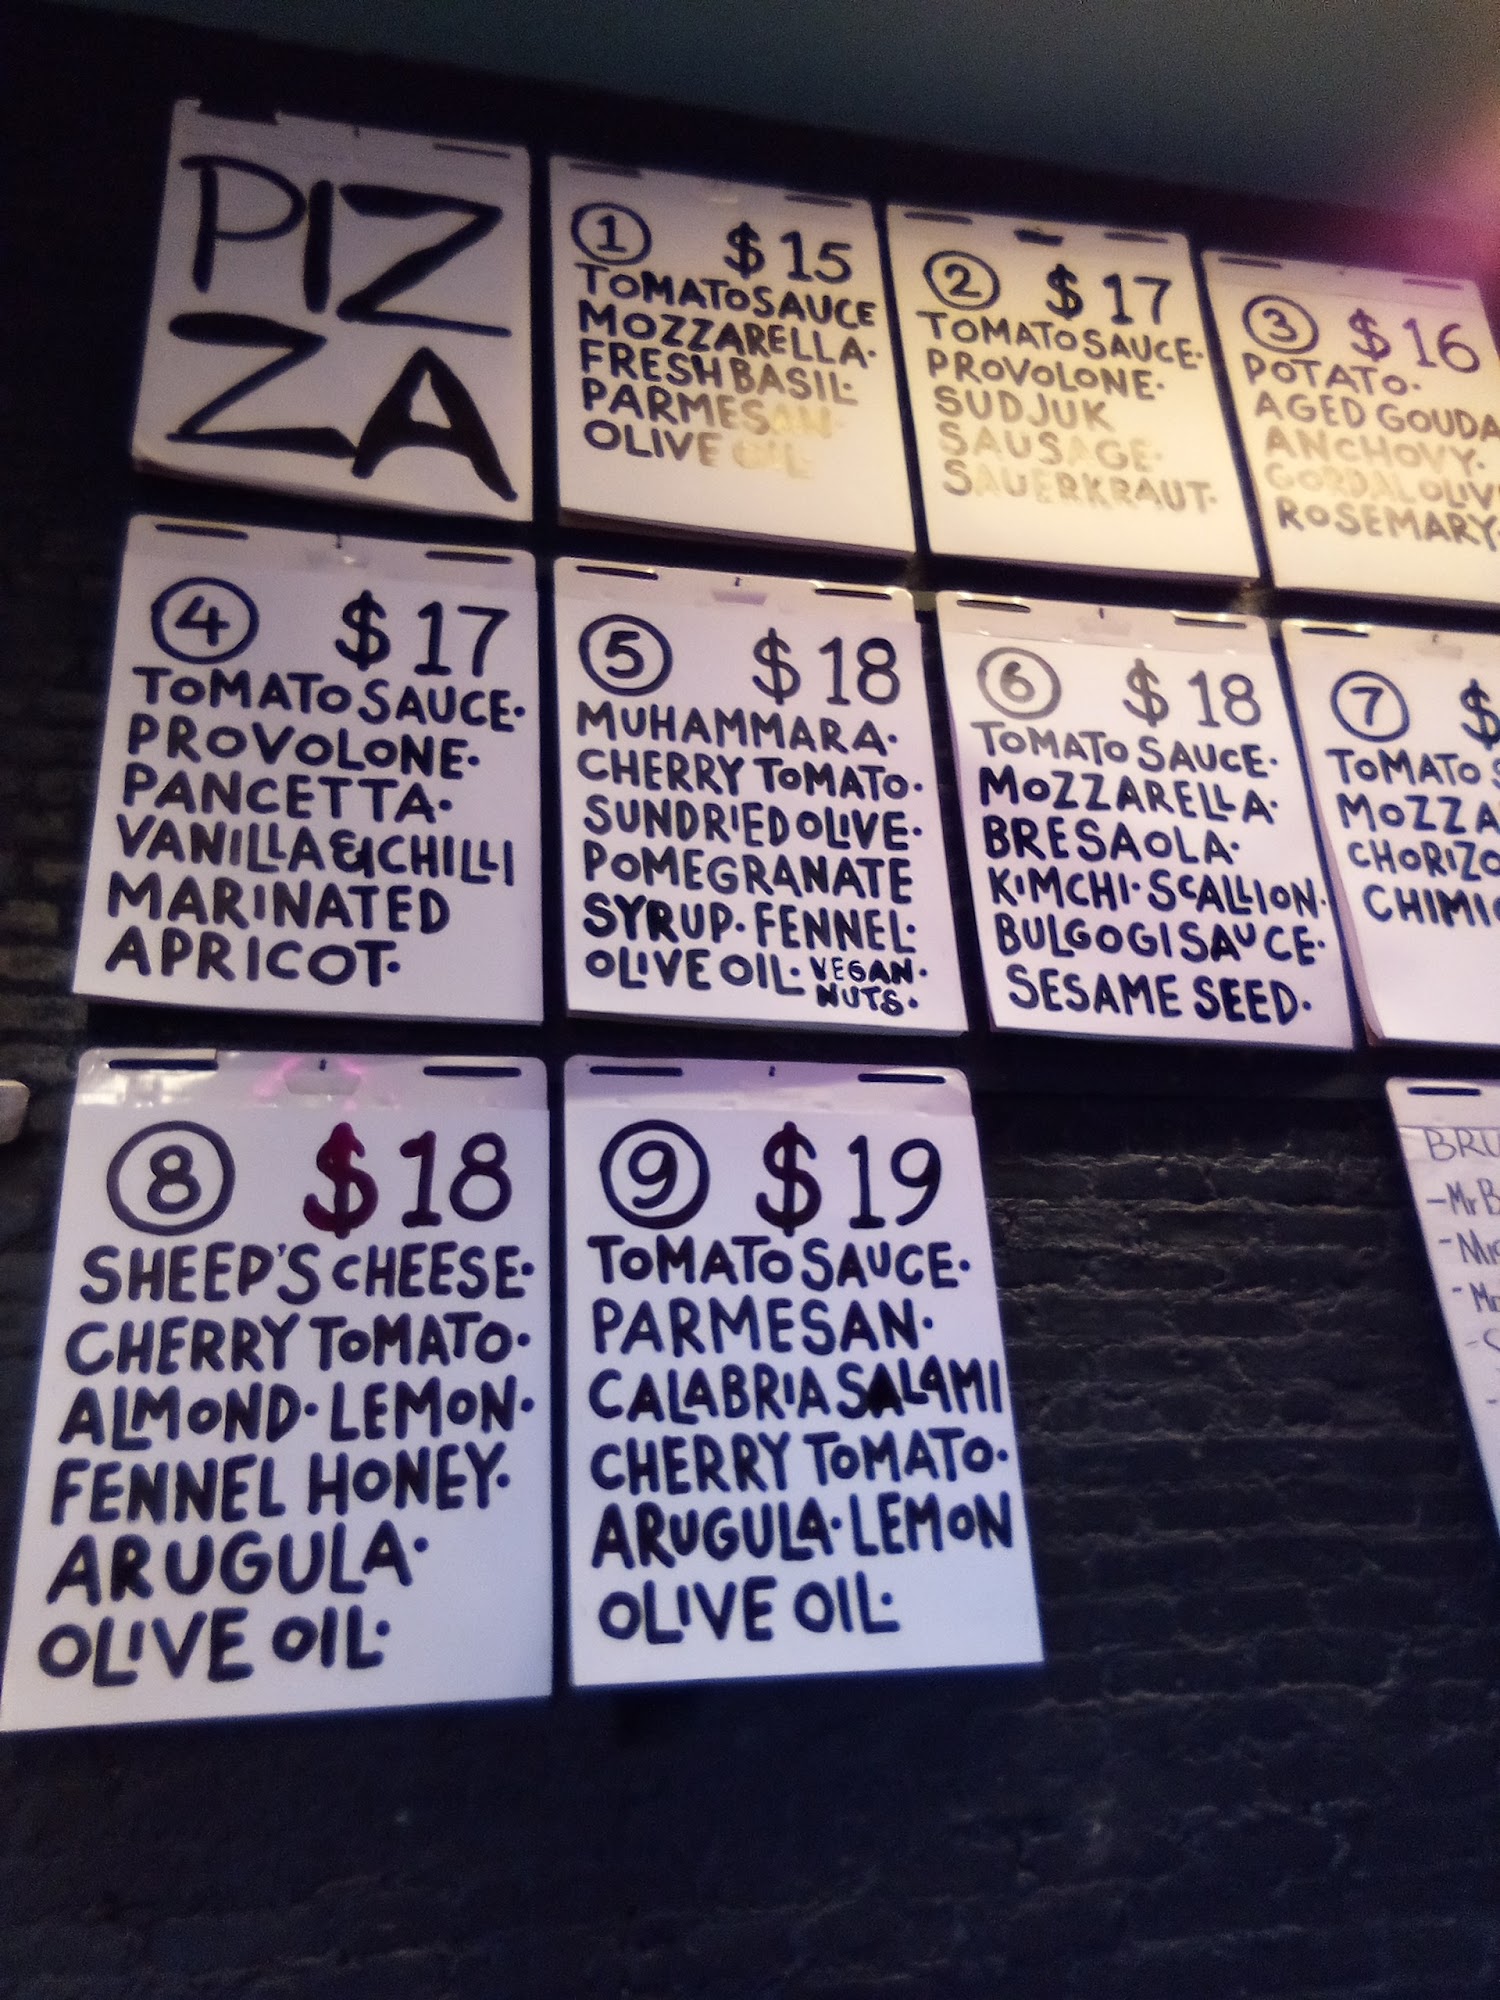 PIZ
ZA
1 $15
TOMATO SAUCE
MOZZARELLA·
FRESH BASIL·
PARMESAN·
OLIVE OIL
2 $17
TOMATO SAUCE·
PROVOLONE·
SUDJUK
SAUSAGE·
SAUERKRAUT·
3 $16
POTATO·
AGED GOUDA
ANCHOVY·
GORDAL OLIV
ROSEMARY·
4 $17
TOMATO SAUCE·
PROVOLONE·
PANCETTA·
VANILLA & CHILLI
MARINATED
APRICOT·
5 $18
MUHAMMARA·
CHERRY TOMATO·
SUNDRIED OLIVE·
POMEGRANATE
SYRUP· FENNEL·
OLIVE OIL· VEGAN·
NUTS·
6 $18
TOMATO SAUCE·
MOZZARELLA·
BRESAOLA·
KIMCHI· SCALLION·
BULGOGI SAUCE·
SESAME SEED·
7 $
TOMATO
MOZZA
CHORIZO
CHIMI
8 $18
SHEEP'S CHEESE·
CHERRY TOMATO·
ALMOND· LEMON·
FENNEL HONEY·
ARUGULA·
OLIVE OIL·
9 $19
TOMATO SAUCE·
PARMESAN·
CALABRIA SALAMI
CHERRY TOMATO·
ARUGULA· LEMON
OLIVE OIL·
BRU
-Mr B